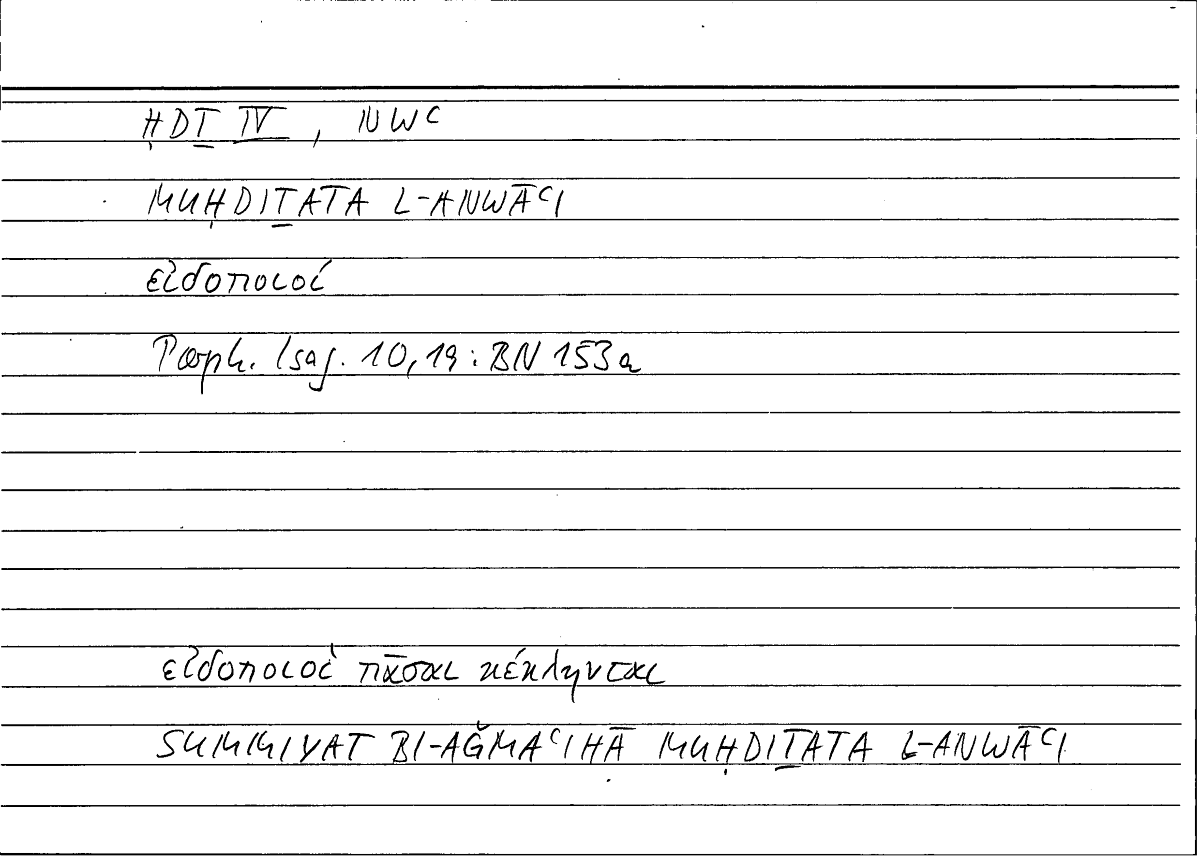 ḤDṮ IV, NWʿ
MUḤDIṮATA L-ANWĀʿI
εἰδοποιοί
Porph. Isag. 10,19: BN 153a
εἰδοποιοὶ πᾶσαι κέκληνται
SUMMIYAT BI-AǦMAʿIHĀ MUḤDIṮATA L-ANWĀʿI